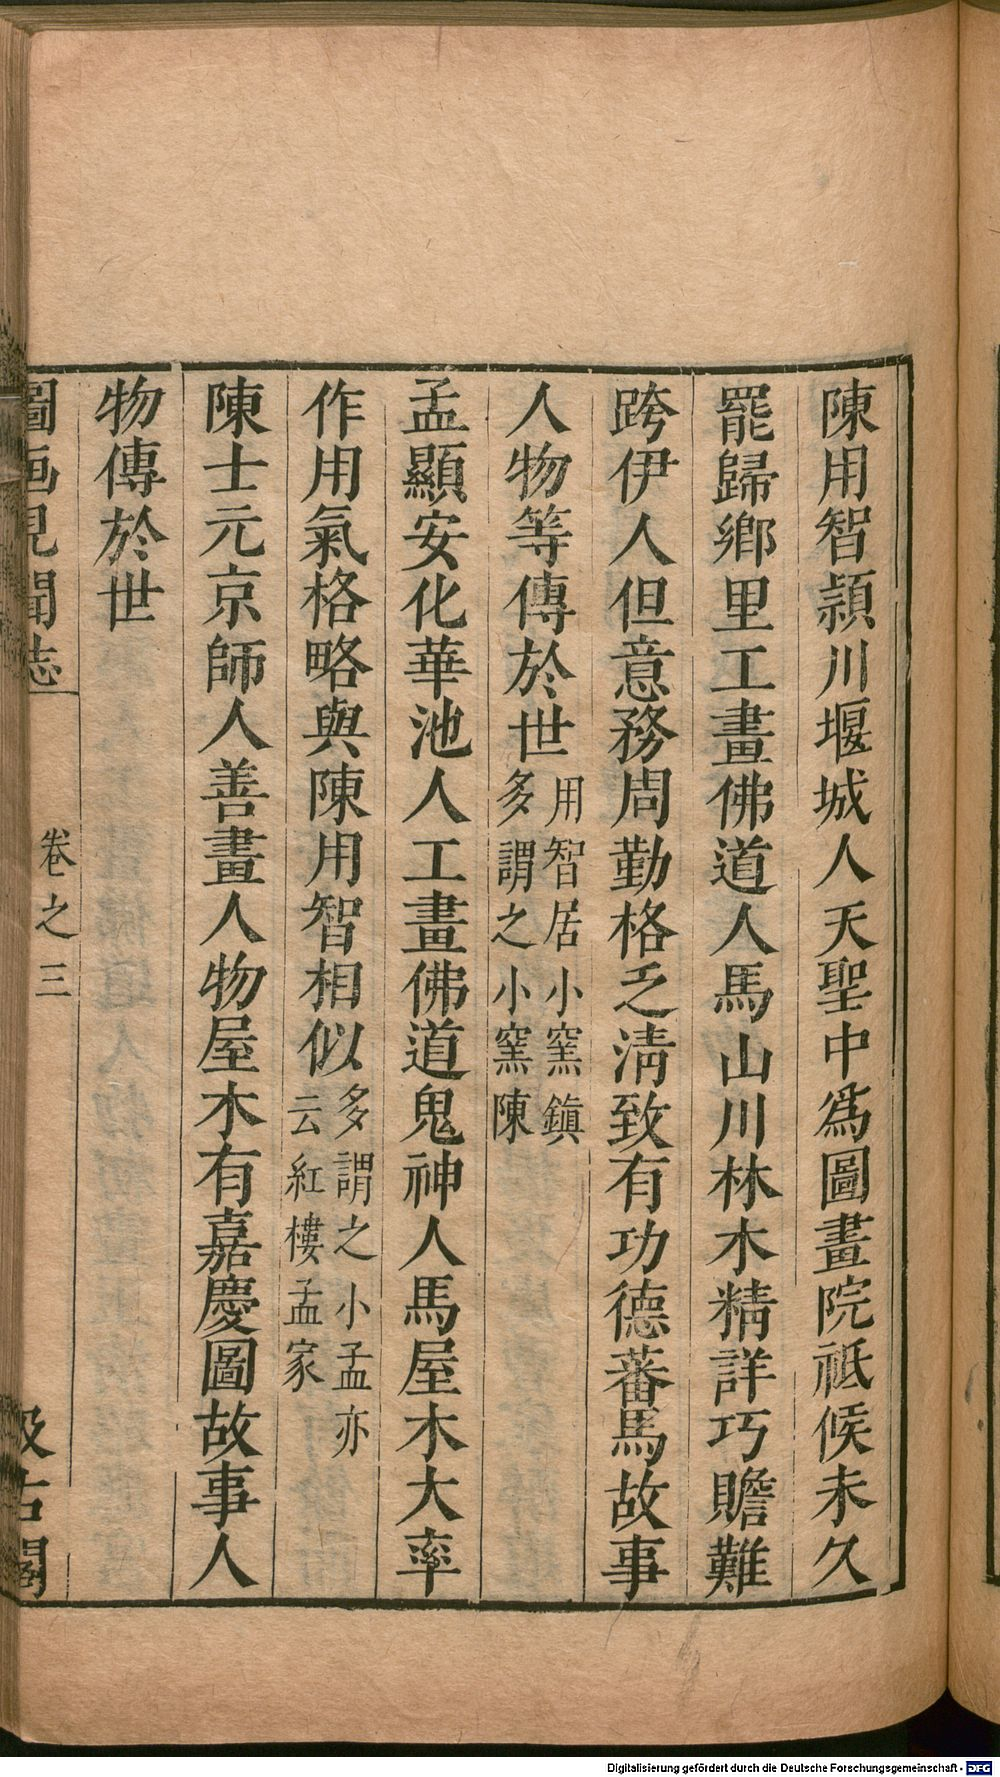 陳用智潁川堰城人天聖中爲圖畫院祗候未久
罷歸鄉里工畫佛道人馬山川林木精詳巧贍難
跨伊人但意務周勤格乏淸致有功德蕃馬故事
人物等傳於世用智居小窯鎮
多謂之小窯陳
孟顯安化華池人工畫佛道鬼神人馬屋木大率
作用氣格略與陳用智相似多謂之小孟亦
云紅樓孟家
陳士元京師人善畫人物屋木有嘉慶圖故事人
物傳於世
圖画見聞志 卷之三 汲古閣
Digitalisierung gefördert durch die Deutsche Forschungsgemeinschaft - DFG